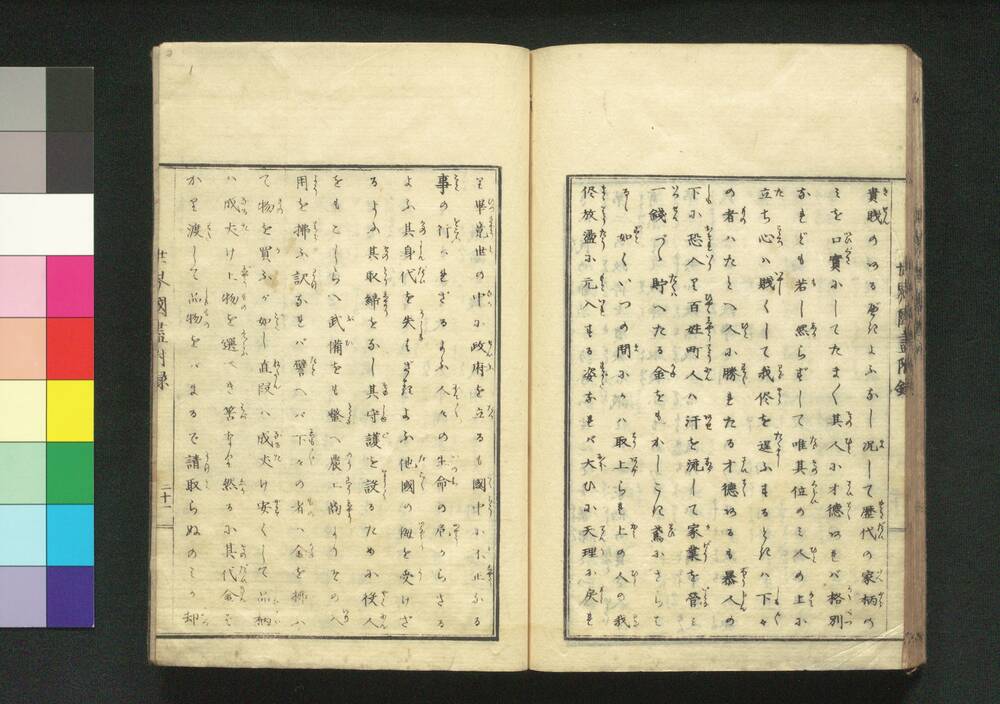 貴賤のあるべきによふなし况して歴代の家柄の
ミを口實にしてたまく其人に才德あれバ格別
なれども若し然らずして唯其位のミ人の上に
立ち心ハ賤くして我侭を逞ふするときハ下々
の者ハたとへ人に勝れたる才德あるも暴人の
下に恐入り百姓町人ハ汗を流して家業を營ミ
一錢づゝ貯へたる金をもかしこに鳶にさらハ
るゝ如くいつの間にかハ取上られ上の人の我
侭放盪に元入する姿なれバ大ひに天理に戾れ
り畢竟世の中に政府を立るも國中に不正ふる
事の行ハれざるよふ人々の生命の危からざる
よふ其身代を失ハざるよふ他國の侮を受けざ
るよふ其取締をなし其守護を設るために役人
をもこしらへ武備をも整へ農工商よりその入
用を拂ふ訳なれバ譬へバ下々の者ハ金を拂ふ
て物を買ふが如し直段ハ成丈け安くして品柄
ハ成丈け上物を選べき筈なり然るに其代金を
かり渡して品物をバまるで請取らぬのミか却
世界國盡附録
二十一